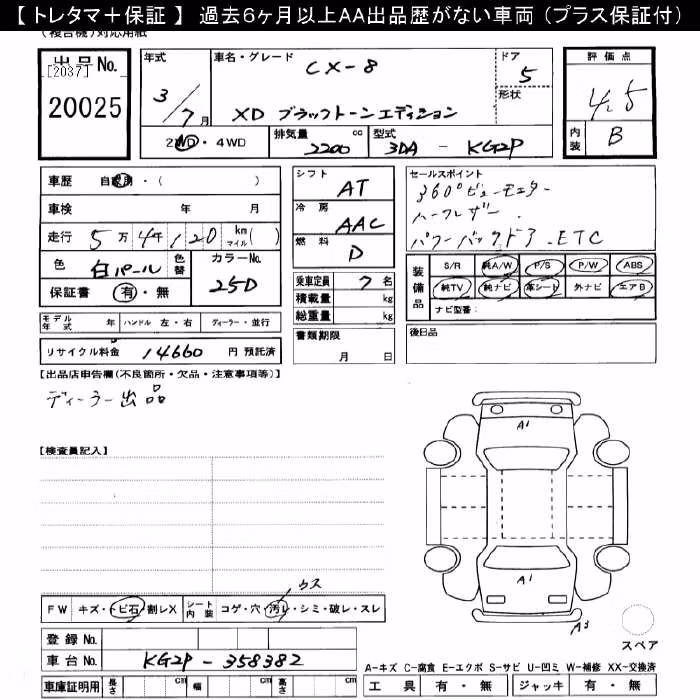 【 トレタマ＋保証 】 過去6ヶ月以上AA出品歴がない車両（プラス保証付）
(複合機)対応用紙
出品No.
[2037]
20025
年式
3/7月
車名・グレード
CX-8
XD ブラックトーンエディション
ドア
5
形状
評価点
4.5
内装
B
2WD・4WD
排気量
2200 cc
型式
3DA - KG2P
車歴 自家用・( )
車検 年 月
走行 5万4千120 km マイル( )
色 白パール
色替
カラーNo.
25D
保証書 有・無
シフト
AT
冷房
AAC
燃料
D
乗車定員 7名
積載量 kg
総重量 kg
書類期限
月 日
セールスポイント
360°ビューモニター
ハーフレザー.
パワーバックドア.ETC
装備品
S/R 純A/W P/S P/W ABS
純TV 純ナビ 革シート 外ナビ エアB
ナビ型番：
後日品
モデル年式 年 ハンドル 左・右 ディーラー・並行
リサイクル料金 14660 円 預託済
【出品店申告欄(不良箇所・欠品・注意事項等)】
ディーラー出品
【検査員記入】
ウス
FW キズ・トビ石・割レX
シート内装 コゲ・穴・汚レ・シミ・破レ・スレ
登録No.
車台No. KG2P - 358382
車庫証明用 長さ cm 幅 cm 高さ cm
A1
A1
A3
スペア
A-キズ C-腐食 E-エクボ S-サビ U-凹ミ W-補修 XX-交換済
工具 有・無 ジャッキ 有・無